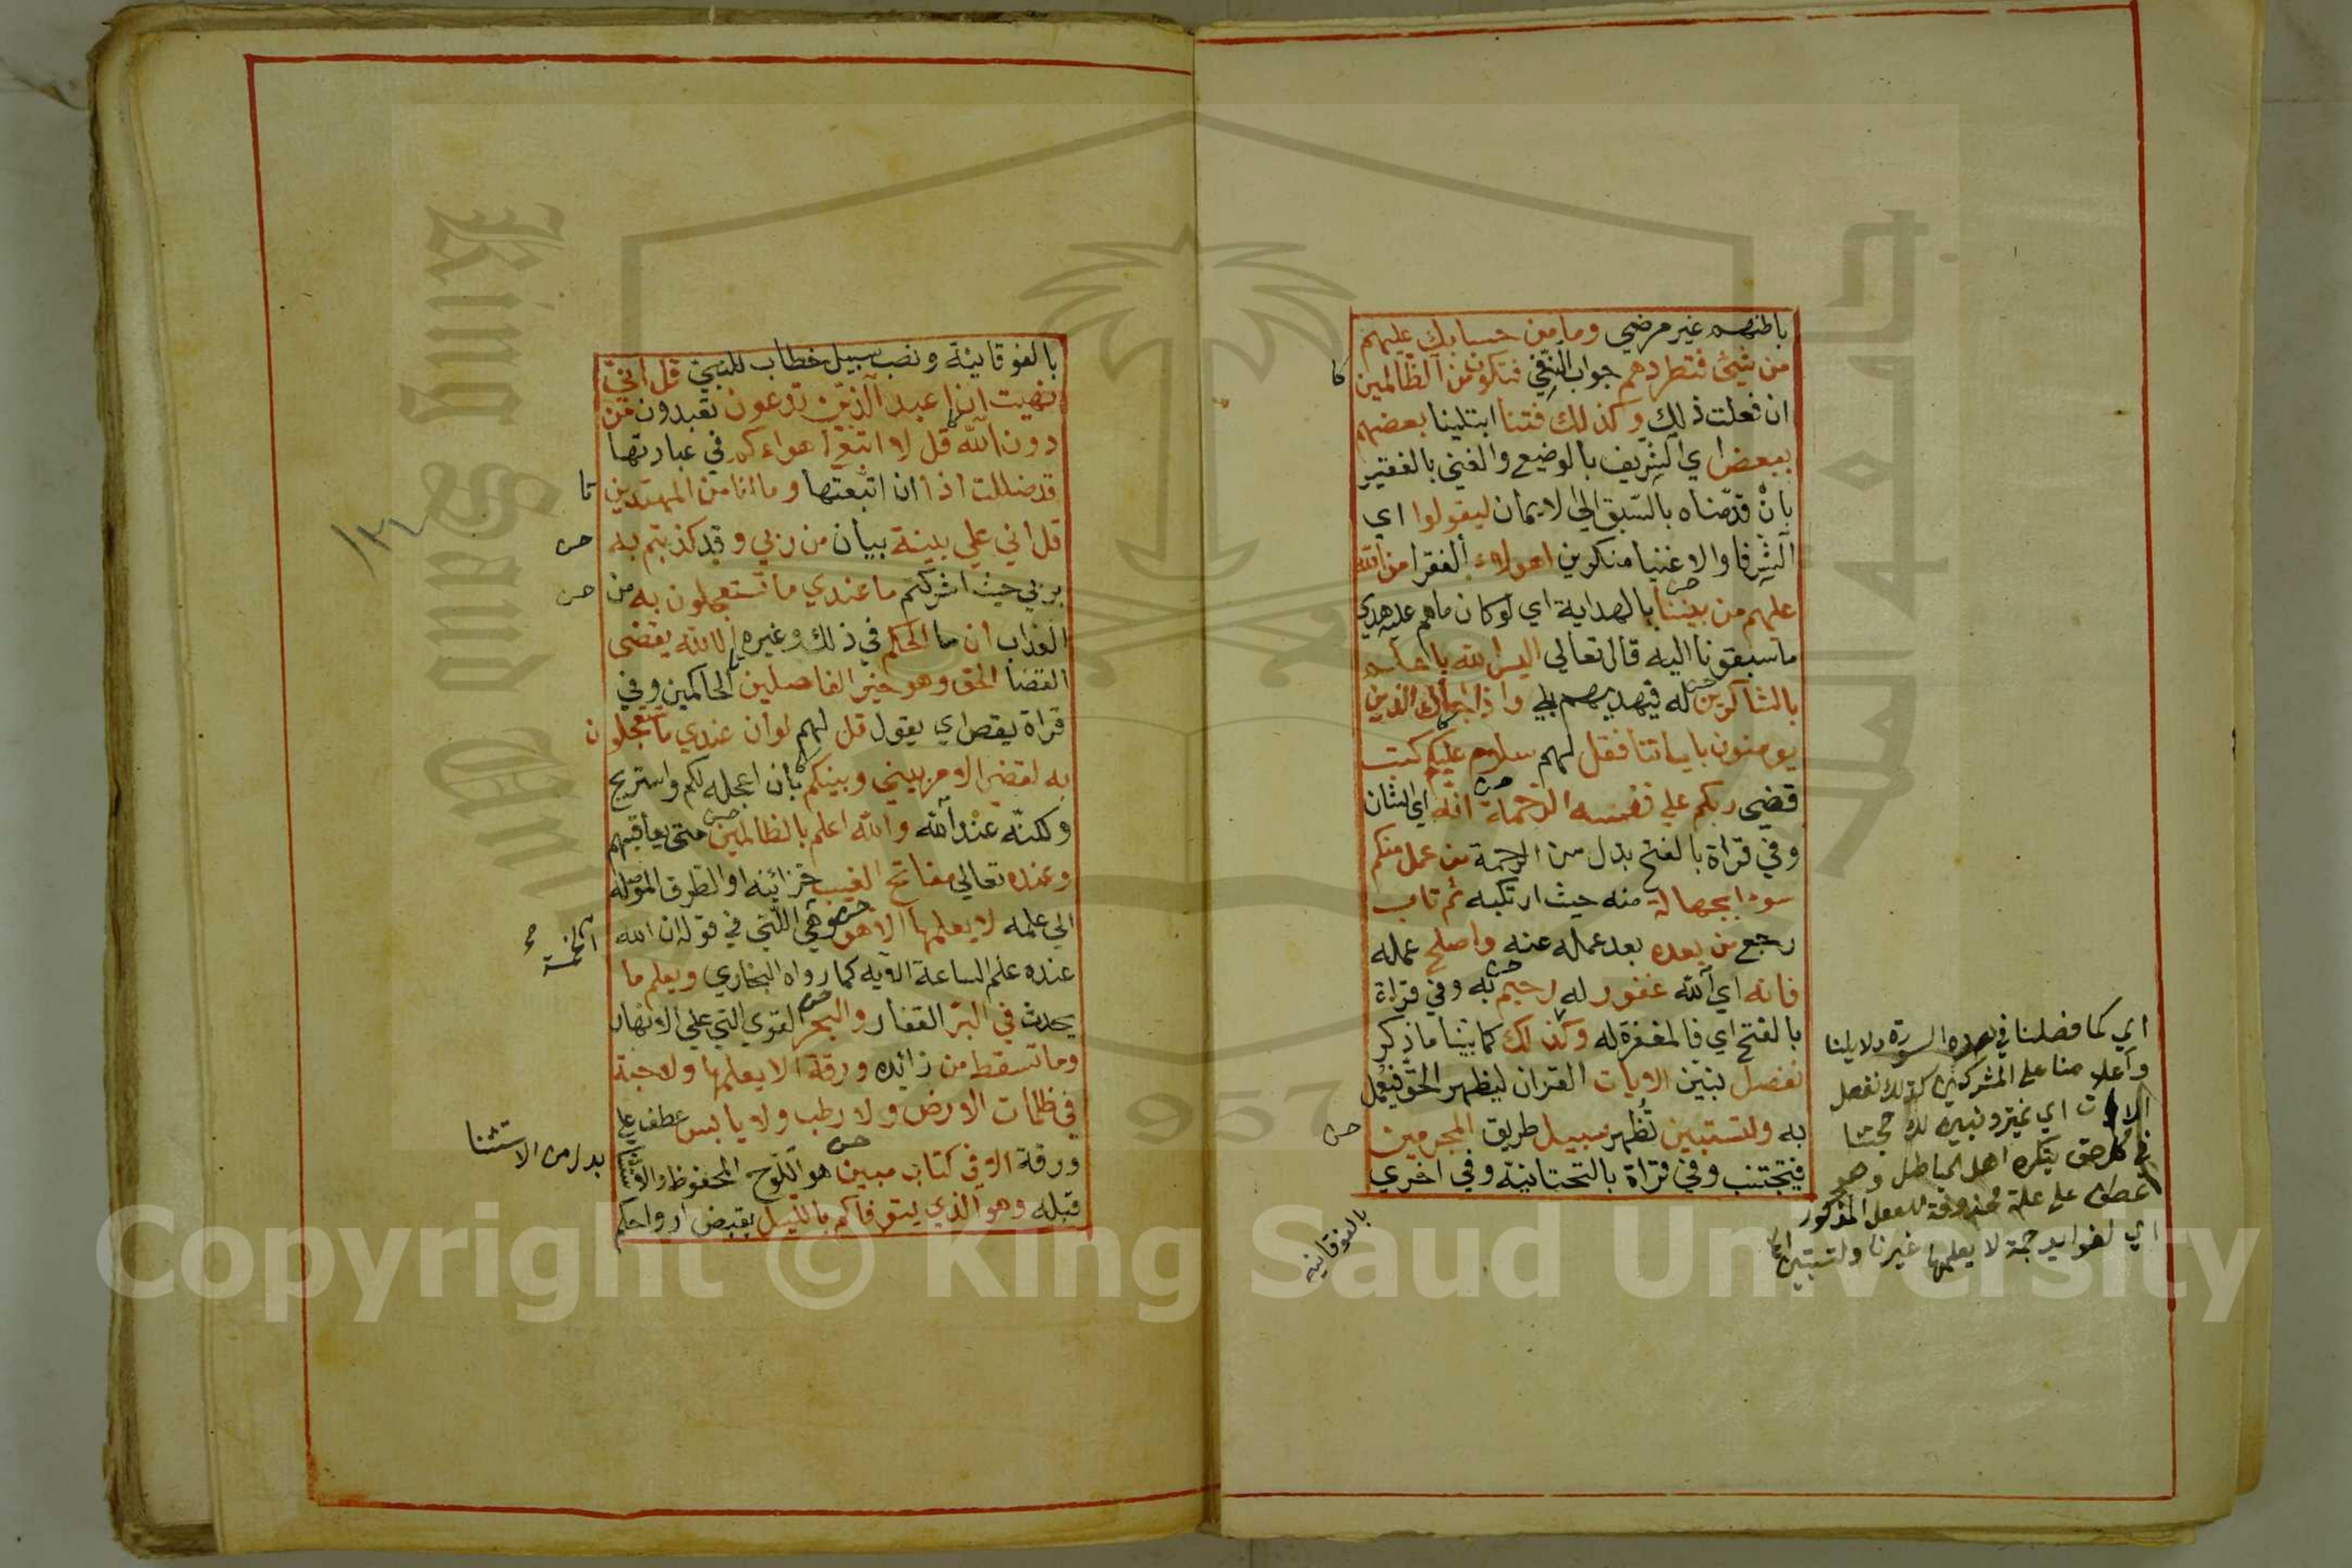 باطنهم غير مرضي وما من حسابك عليهم
من شيئ فتطردهم جواب النفي فتكون من الظالمين
كا
ان فعلت ذلك وكذلك فتنا ابتلينا بعضهم
ببعض اي الشريف بالوضيع والغني بالفقير
بان قدمناه بالسبق الي الايمان ليقولوا اي
الشرفا والاغنيا منكرين اهولاء الفقرا من الله
عليهم من بيننا بالهداية اي لو كان ماهم عليه هدي
ما سبقونا اليه قال تعالي اليس الله باعلم
بالشاكرين له فيهديهم بلي واذا جاءك الذين
يومنون باياتنا فقل لهم سلام عليكم كتب
قضي ربكم علي نفسه الرحمة انه اي الشان
وفي قراة بالفتح بدل من الرحمة من عمل منكم
سوءا بجهالة منه حيث ارتكبه ثم تاب
رجع من بعده بعد عمله عنه واصلح عمله
فانه اي الله غفور له رحيم به وفي قراة
بالفتح اي فالمغفرة له وكذلك كما بينا ما ذكر
نفصل نبين الايات القران ليظهر الحق فيعمل
به ولتستبين تظهر سبيل طريق المجرمين
حس
فيتجتنب وفي قراة بالتحتانية وفي اخري
بالفوقانيه
اي كما فصلنا في هذه السورة دلايلنا
واعلامنا علي المشركين كذلك نفصل
الايات اي نميز ونبين لك حجتنا
في كل حق ينكره اهل الباطل وهو
عطف علي علة محذوفة للفعل المذكور
اي لفوايد جمة لا يعلمها غيرنا ولتستبين
بالفوقانية ونصب سبيل خطاب للنبي قل اني
نهيت ان اعبد الذين تدعون تعبدون من
دون الله قل لا اتبع اهواءكم في عبادتها
قد ضللت اذا ان اتبعتها وما انا من المهتدين
قل اني علي بينة بيان من ربي وقد كذبتم به
حس
بربي حيث اشركتم ما عندي ما تستعجلون به من
حس
العذاب ان ما الحكم في ذلك وغيره الا لله يقضي
القضا الحق وهو خير الفاصلين الحاكمين وفي
قراة يقص اي يقول قل لهم لو ان عندي ما تستعجلون
به لقضي الامر بيني وبينكم بان اعجله لكم واستريح
ولكنه عند الله والله اعلم بالظالمين متي يعاقبهم
وعنده تعالي مفاتح الغيب خزائنه او الطرق الموصلة
الي علمه لا يعلمها الا هو وهي التي في قوله ان الله
عنده علم الساعة الاية كما رواه البخاري ويعلم ما
يحدث في البر القفار والبحر القري التي علي الانهار
وما تسقط من زائده ورقة الا يعلمها ولا حبة
في ظلمات الارض ولا رطب ولا يابس عطف علي
ورقة الا في كتاب مبين هو اللوح المحفوظ والاستثنا
بدل من الاستثنا
قبله وهو الذي يتوفاكم بالليل يقبض ارواحكم
King Saud University
جامعة الملك
1957
Copyright © King Saud University